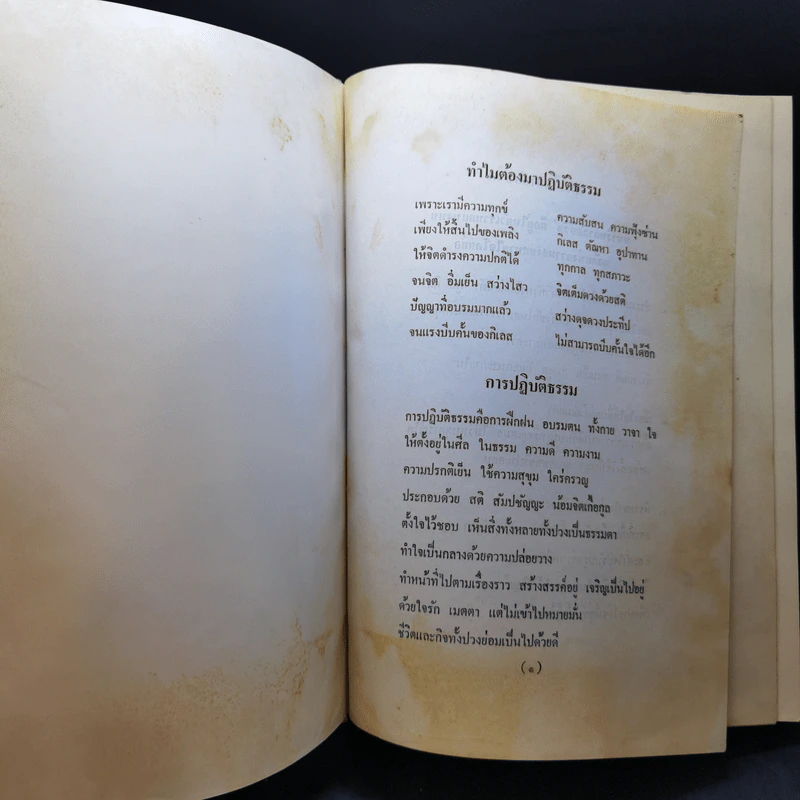 ทำไมต้องมาปฏิบัติธรรม
เพราะเรามีความทุกข์ ความสับสน ความฟุ้งซ่าน
เพียงให้สิ้นไปของเพลิง กิเลส ตัณหา อุปาทาน
ให้จิตดำรงความปกติได้ ทุกกาล ทุกสภาวะ
จนจิต อิ่มเย็น สว่างไสว จิตเต็มดวงด้วยสติ
ปัญญาที่อบรมมากแล้ว สว่างดุจดวงประทีป
จนแรงบีบคั้นของกิเลส ไม่สามารถบีบคั้นใจได้อีก
การปฏิบัติธรรม
การปฏิบัติธรรมคือการฝึกฝน อบรมตน ทั้งกาย วาจา ใจ
ให้ตั้งอยู่ในศีล ในธรรม ความดี ความงาม
ความปรกติเย็น ใช้ความสุขุม ใคร่ครวญ
ประกอบด้วย สติ สัมปชัญญะ น้อมจิตเกื้อกูล
ตั้งใจไว้ชอบ เห็นสิ่งทั้งหลายทั้งปวงเป็นธรรมดา
ทำใจเป็นกลางด้วยความปล่อยวาง
ทำหน้าที่ไปตามเรื่องราว สร้างสรรค์อยู่ เจริญเป็นไปอยู่
ด้วยใจรัก เมตตา แต่ไม่เข้าไปหมายมั่น
ชีวิตและกิจทั้งปวงย่อมเป็นไปด้วยดี
(๑)